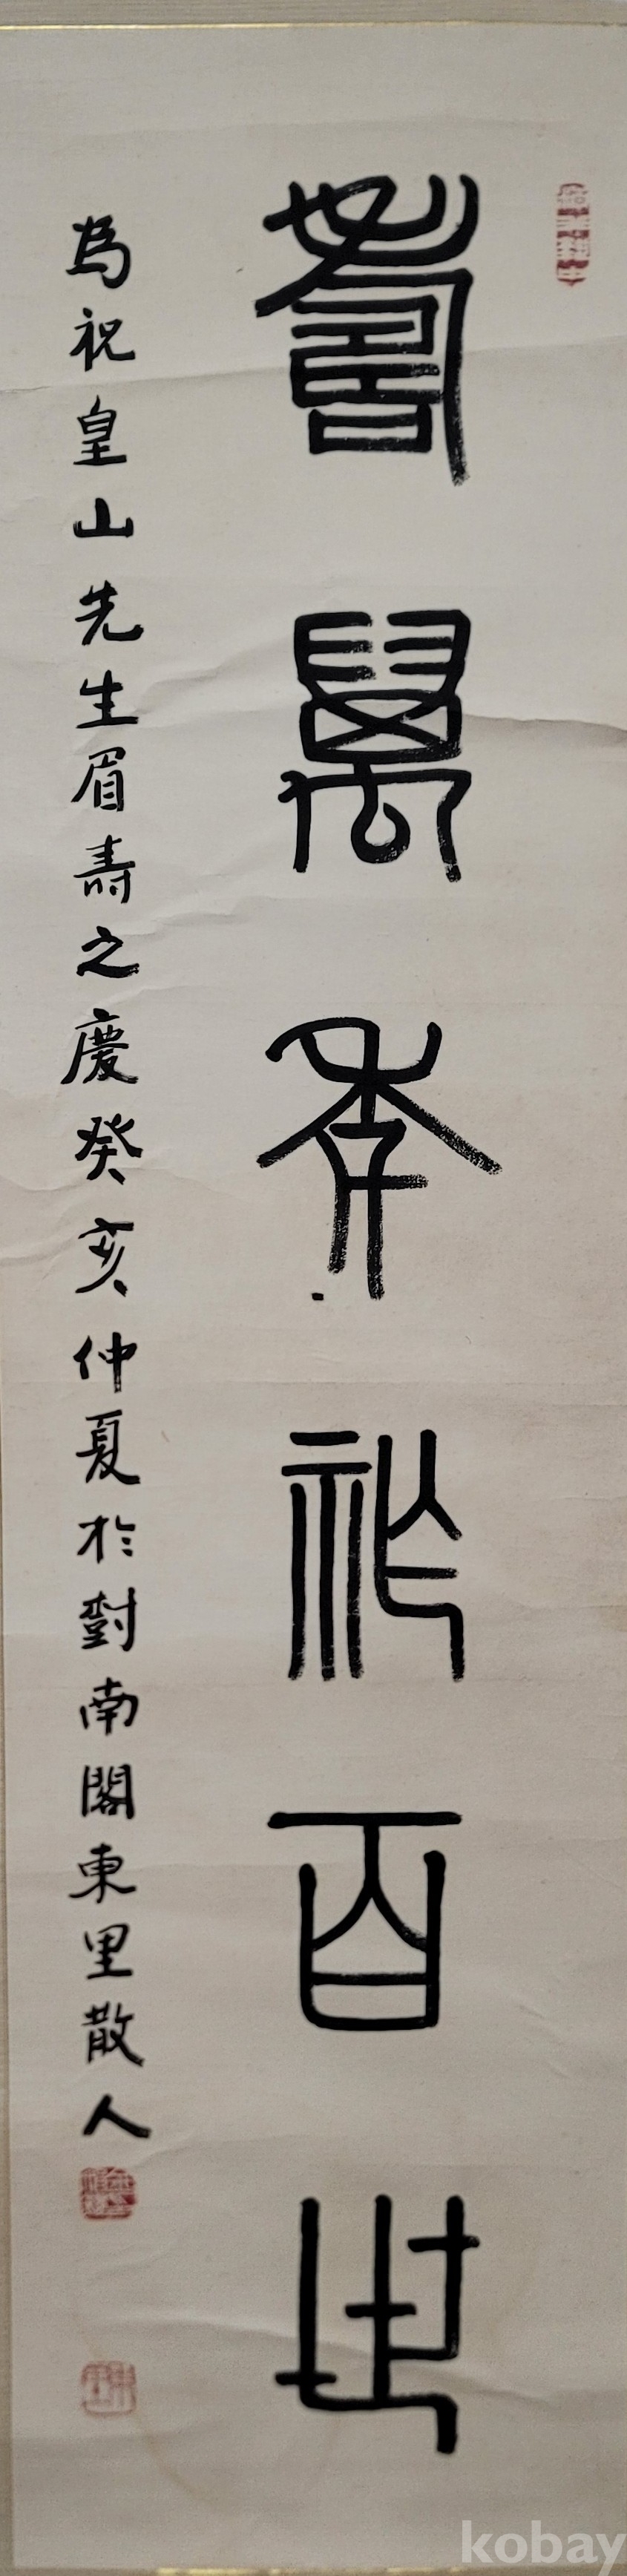 壽萬年祚百世
為祝皇山先生眉壽之慶癸亥仲夏於對南閣東里散人
kobay